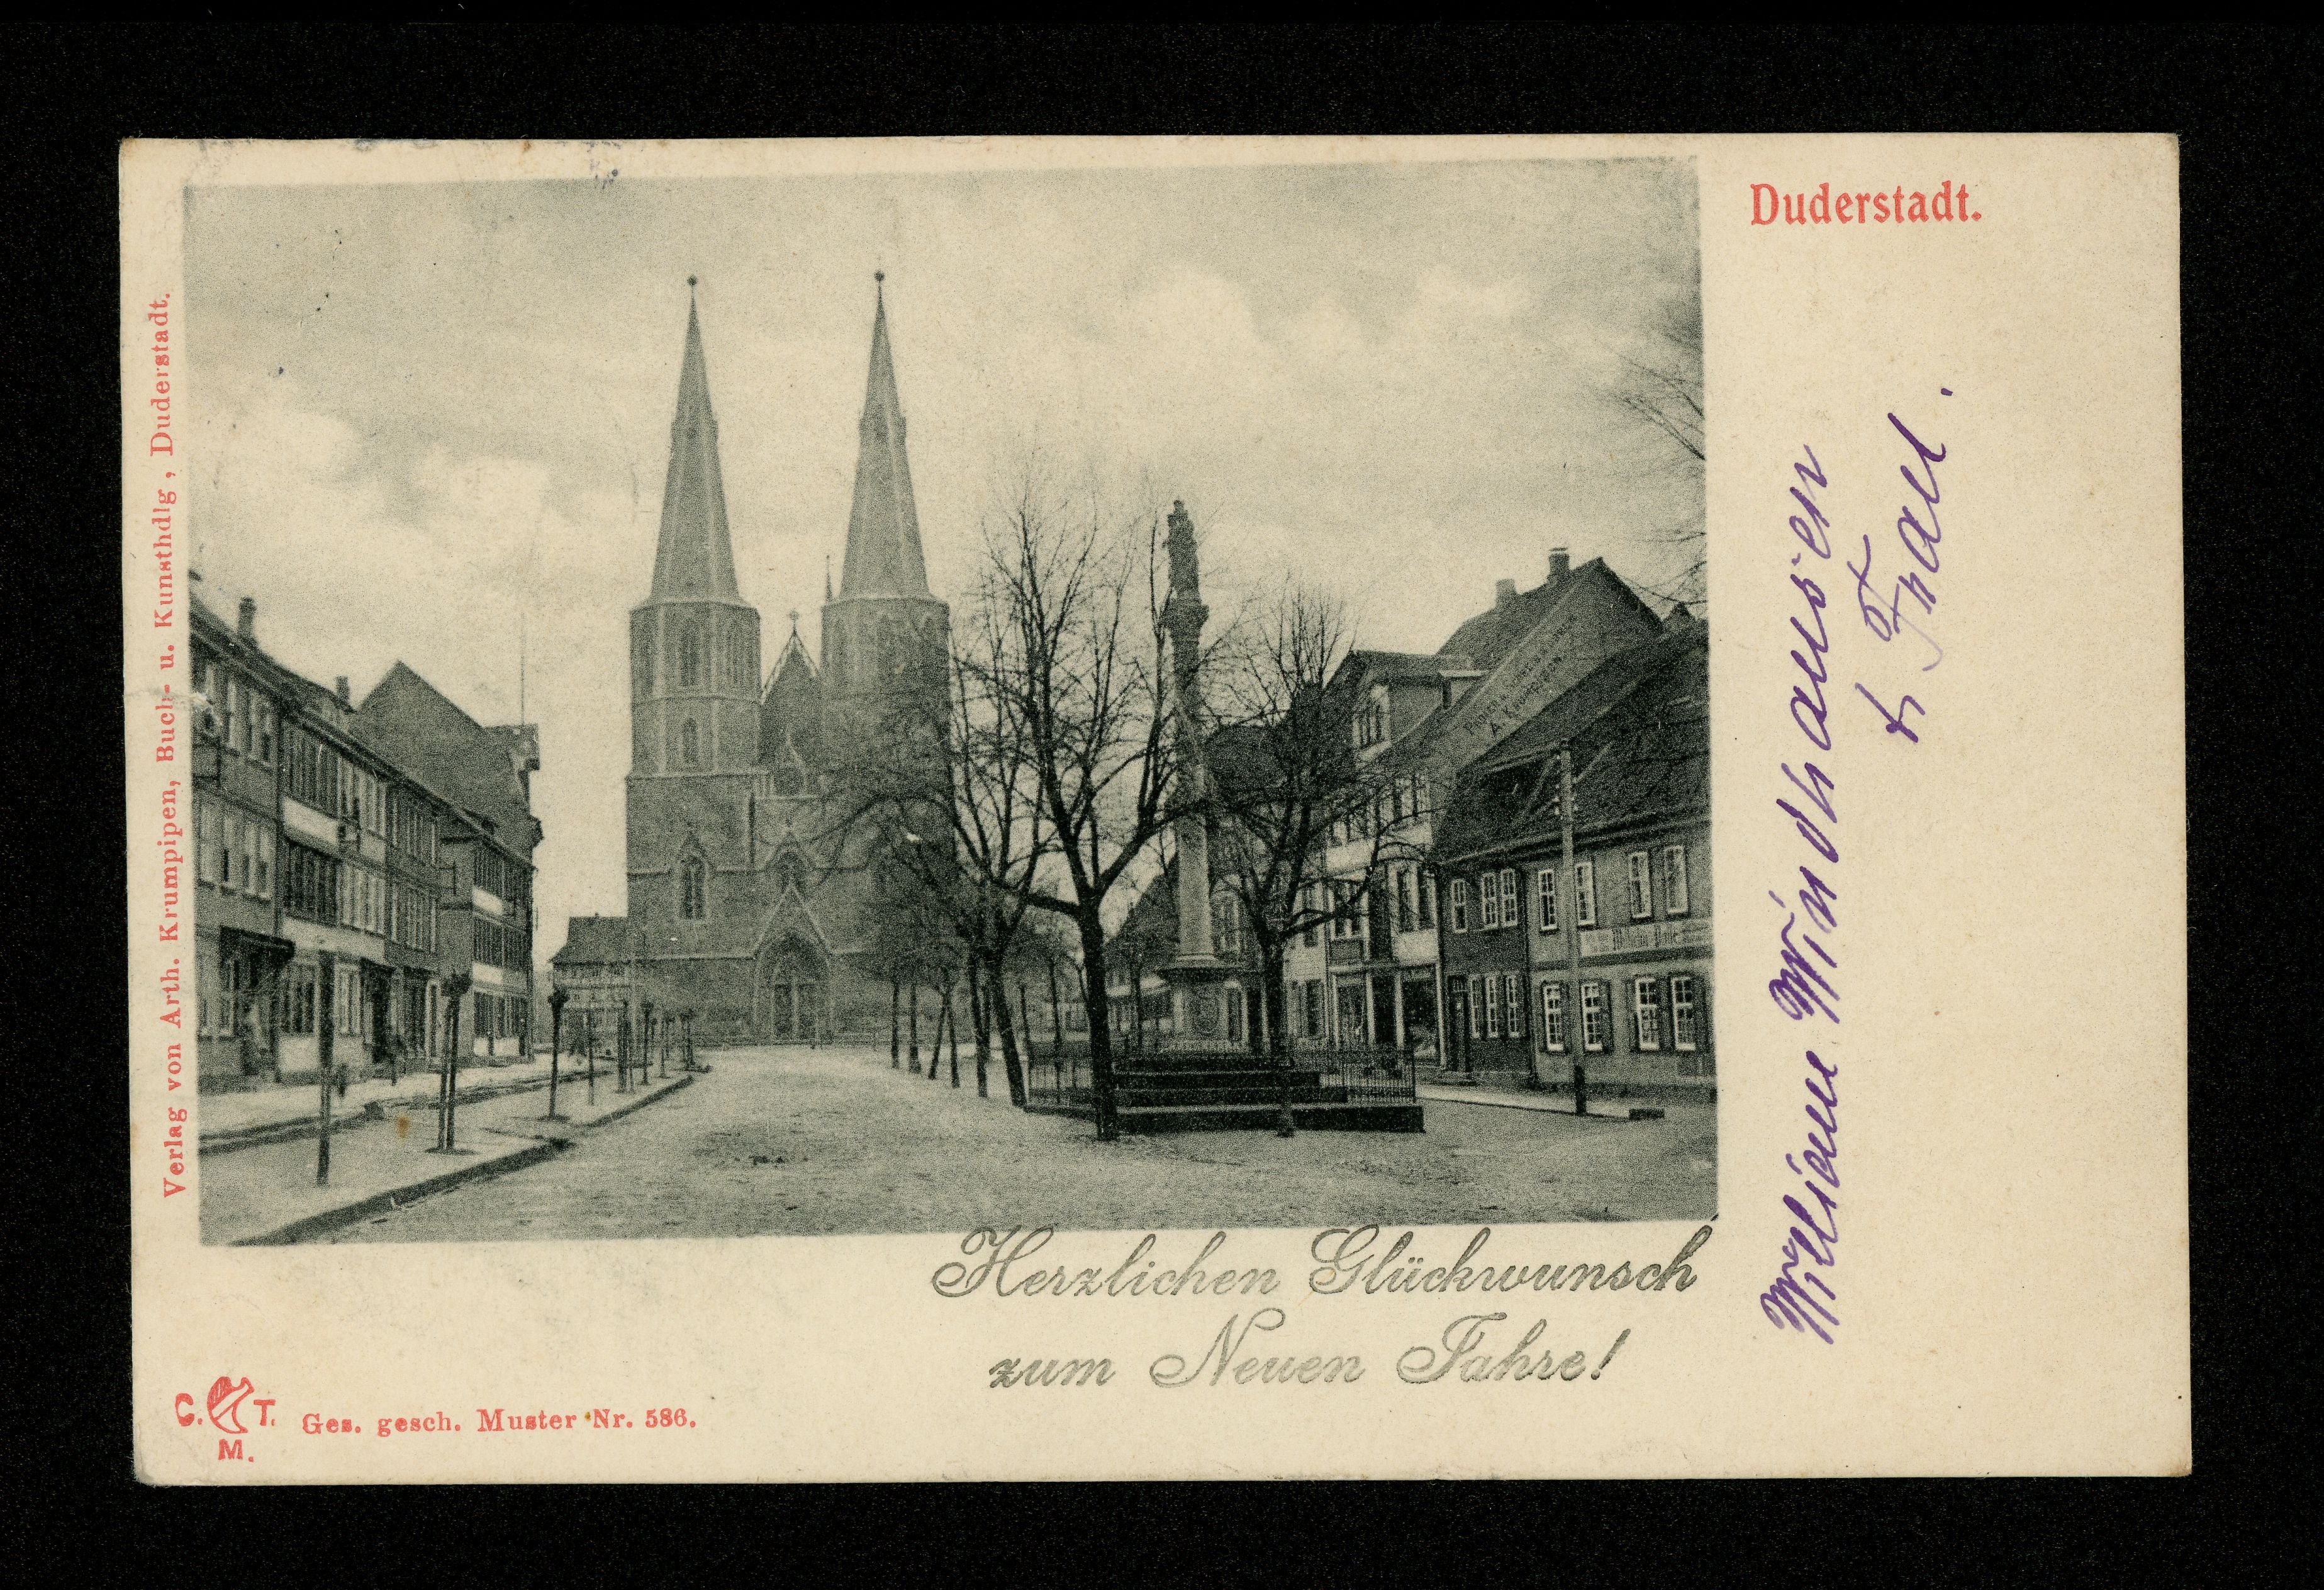 Duderstadt.
Verlag von Arth. Krumpipen, Buch- u. Kunsthdlg, Duderstadt.
A. Krumpipen.
William Windhausen
u. Frau.
Herzlichen Glückwunsch
zum Neuen Jahre!
C. T.
M.
Ges. gesch. Muster Nr. 586.